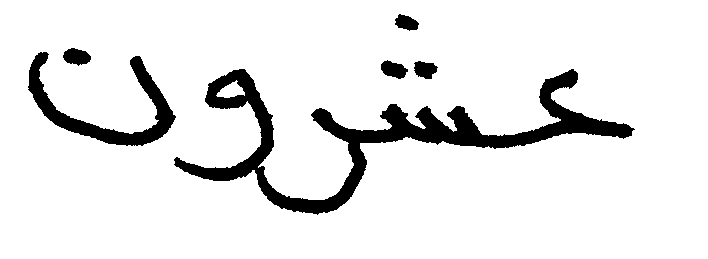 عشرون